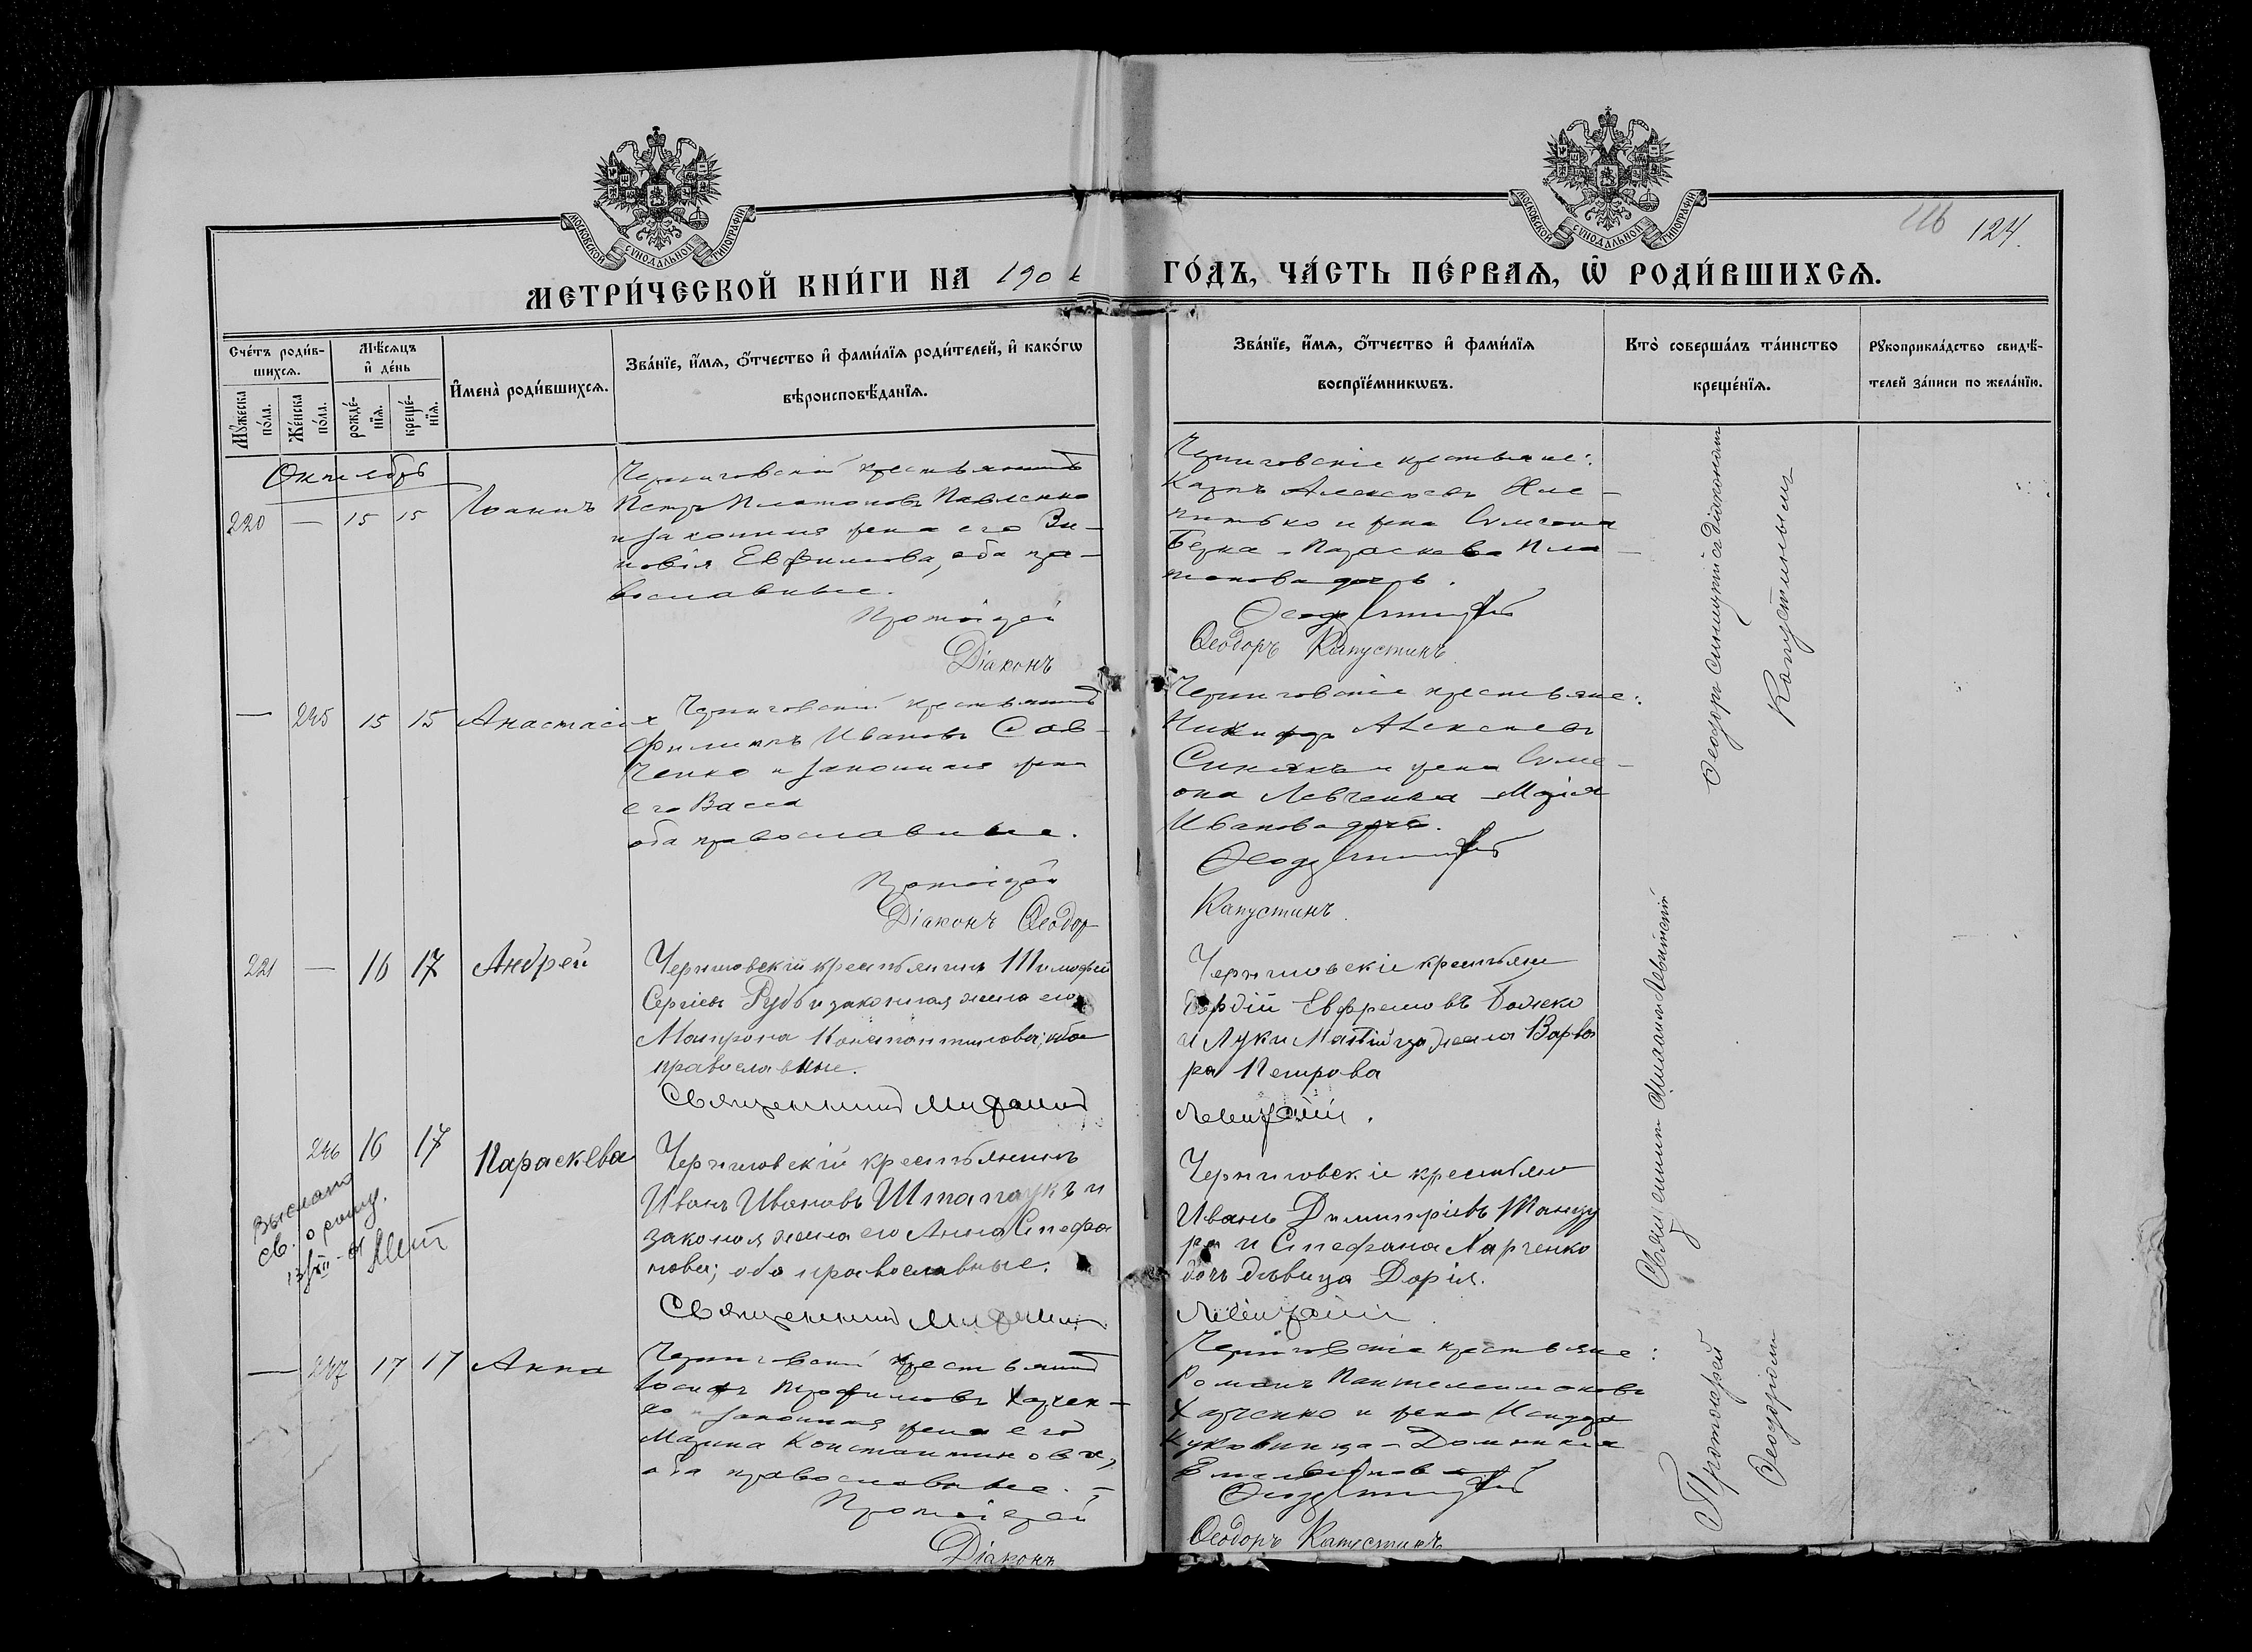 МОСКОВСКОЙ СѴНОДАЛЬНОЙ ТИПОГРАФІИ
МОСКОВСКОЙ СѴНОДАЛЬНОЙ ТИПОГРАФІИ
116 124.
МЕТРИ́ЧЕСКОЙ КНИ́ГИ НА 190
ГО́ДЪ, ЧА́СТЬ ПЕ́РВАѦ, Ѿ РОДИ́ВШИХСѦ.
Сче́тъ роди́в-
шихсѧ.
Мꙋ́жеска по́ла.
Же́нска по́ла.
Мѣ́сѧцъ
и҆ де́нь
рожде́-
нїѧ.
креще́-
нїѧ.
И҆мена̀ роди́вшихсѧ.
Зва́нїе, и҆́мѧ, ѻ҆́тчество и҆ фами́лїѧ роди́телей, и҆ како́гѡ
вѣроисповѣ́данїѧ.
Зва́нїе, и҆́мѧ, ѻ҆́тчество и҆ фами́лїѧ
воспрїе́мникѡвъ.
Кто̀ соверша́лъ та́инство
креще́нїѧ.
Рꙋкоприкла́дство свидѣ́-
телей за́писи по жела́нїю.
Октябрь
220 — 15 15 Іоаннъ
Черниговскій крестьянинъ
Петръ Платоновъ Павленко
и законная жена его Зи-
новія Евфимова, оба пра-
вославные.
Протоіерей
Діаконъ
Черниговскіе крестьяне:
Карпъ Алексѣевъ
и жена Симеона
Параскева Пла-
тонова дочь.
Ѳеодоръ Капустинъ
— 245 15 15 Анастасія
Черниговскій крестьянинъ
Филиппъ Ивановъ Сав-
ченко и законная жена
его Васса
оба православные.
Протоіерей
Діаконъ Ѳеодор
Черниговскіе крестьяне:
Никифоръ Алексѣевъ
Синякъ и жена Симе-
она Левченка — Марія
Иванова дочь.
Капустинъ.
221 — 16 17 Андрей
Черниговскій крестьянинъ Тимофей
Сергіевъ Рубъ и законная жена его
Матрона Константинова; оба
православные.
Священникъ Михаилъ
Черниговскіе крестьяне
Гордій Евфремовъ
и Луки жена Варва
ра Петрова
246 16 17 Параскева
Выслано
св. о рожд.
13/XII
Черниговскій крестьянинъ
Иванъ Ивановъ Штапаукъ и
законная жена его Анна Стефа
нова; оба православные.
Священникъ Михаилъ
Черниговскіе крестьяне
Иванъ Димитріевъ Танцу
ра и Стефана Харченко
дочь дѣвица Дарія.
— 247 17 17 Анна
Черниговскій крестьянинъ
Іосифъ Трофимовъ Харчен-
ко и законная жена его
Марина Константинова,
оба православные.
Протоіерей
Діаконъ
Черниговскіе крестьяне:
Романъ Пантелеимоновъ
Харченко и жена Исидора
Куковица — Домникія
Емельянова
Ѳеодоръ Капустинъ
Ѳеодоръ съ Діакономъ
Капустинымъ
Священникъ Михаилъ
Протоіерей
Ѳеодоромъ